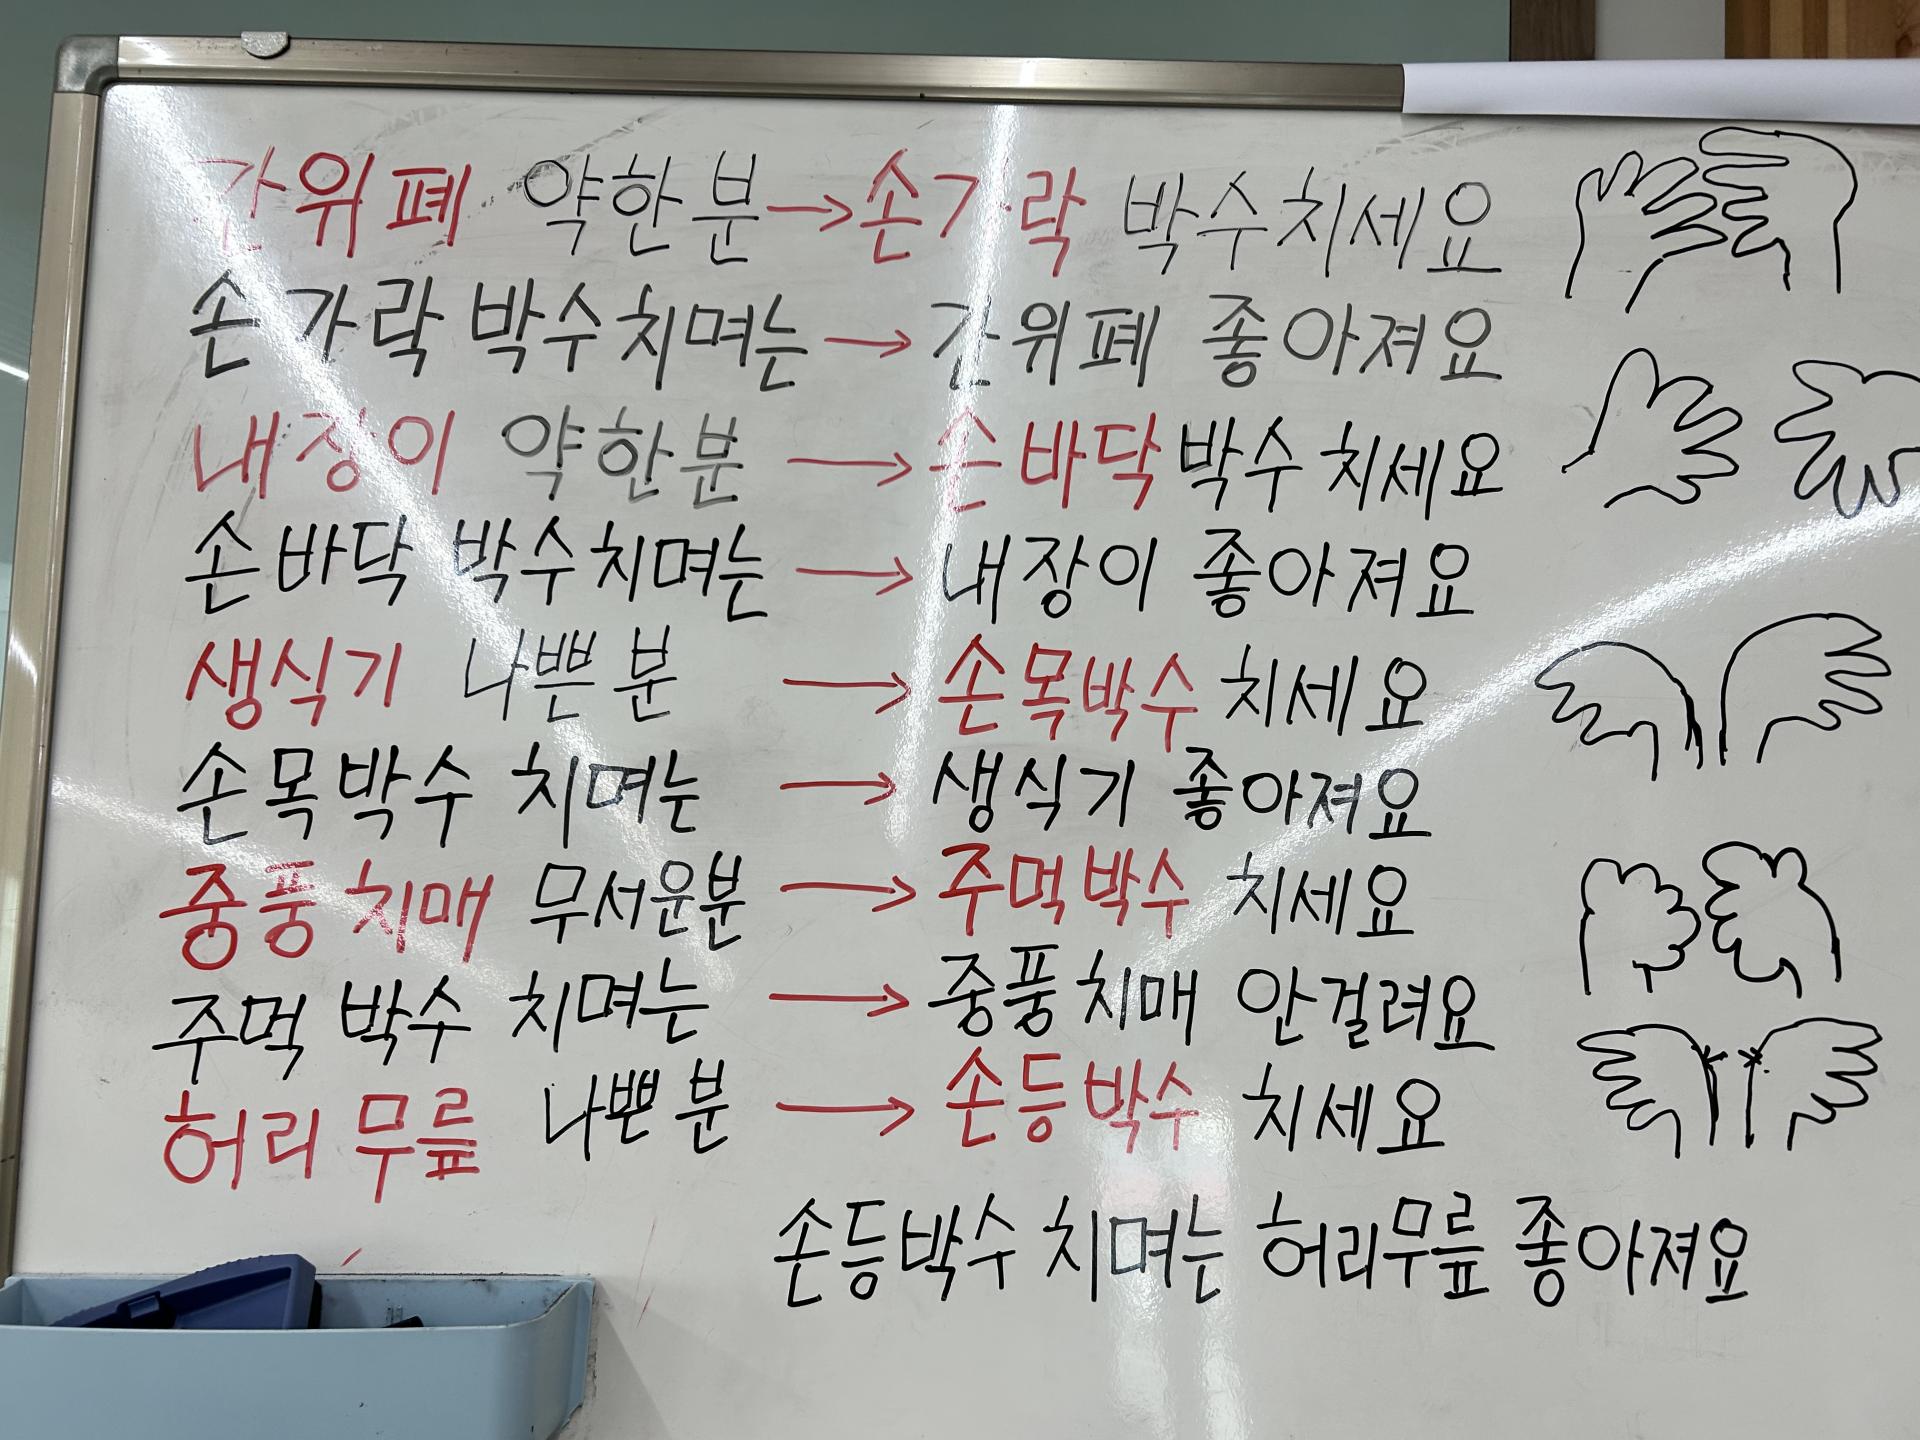 간위폐 약한분→손가락 박수치세요
손가락 박수치며는→간위폐 좋아져요
내장이 약한분→손바닥 박수치세요
손바닥 박수치며는→내장이 좋아져요
생식기 나쁜분→손목박수 치세요
손목박수 치며는→생식기 좋아져요
중풍 치매 무서운분→주먹박수 치세요
주먹 박수 치며는→중풍치매 안걸려요
허리 무릎 나쁜분→손등박수 치세요
손등박수 치며는 허리무릎 좋아져요